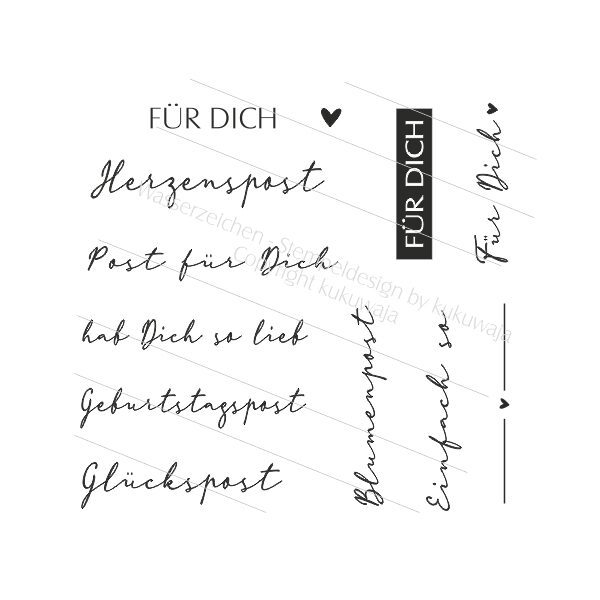 FÜR DICH
Herzenspost
Post für Dich
hab Dich so lieb
Geburtstagspost
Glückspost
FÜR DICH
Für Dich
Blumenpost
Einfach so
Wasserzeichen Stempeldesign by kukuwaja
Copyright kukuwaja